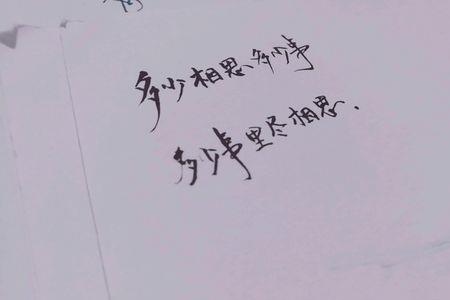 多少相思、多少事
多少事里尽相思.